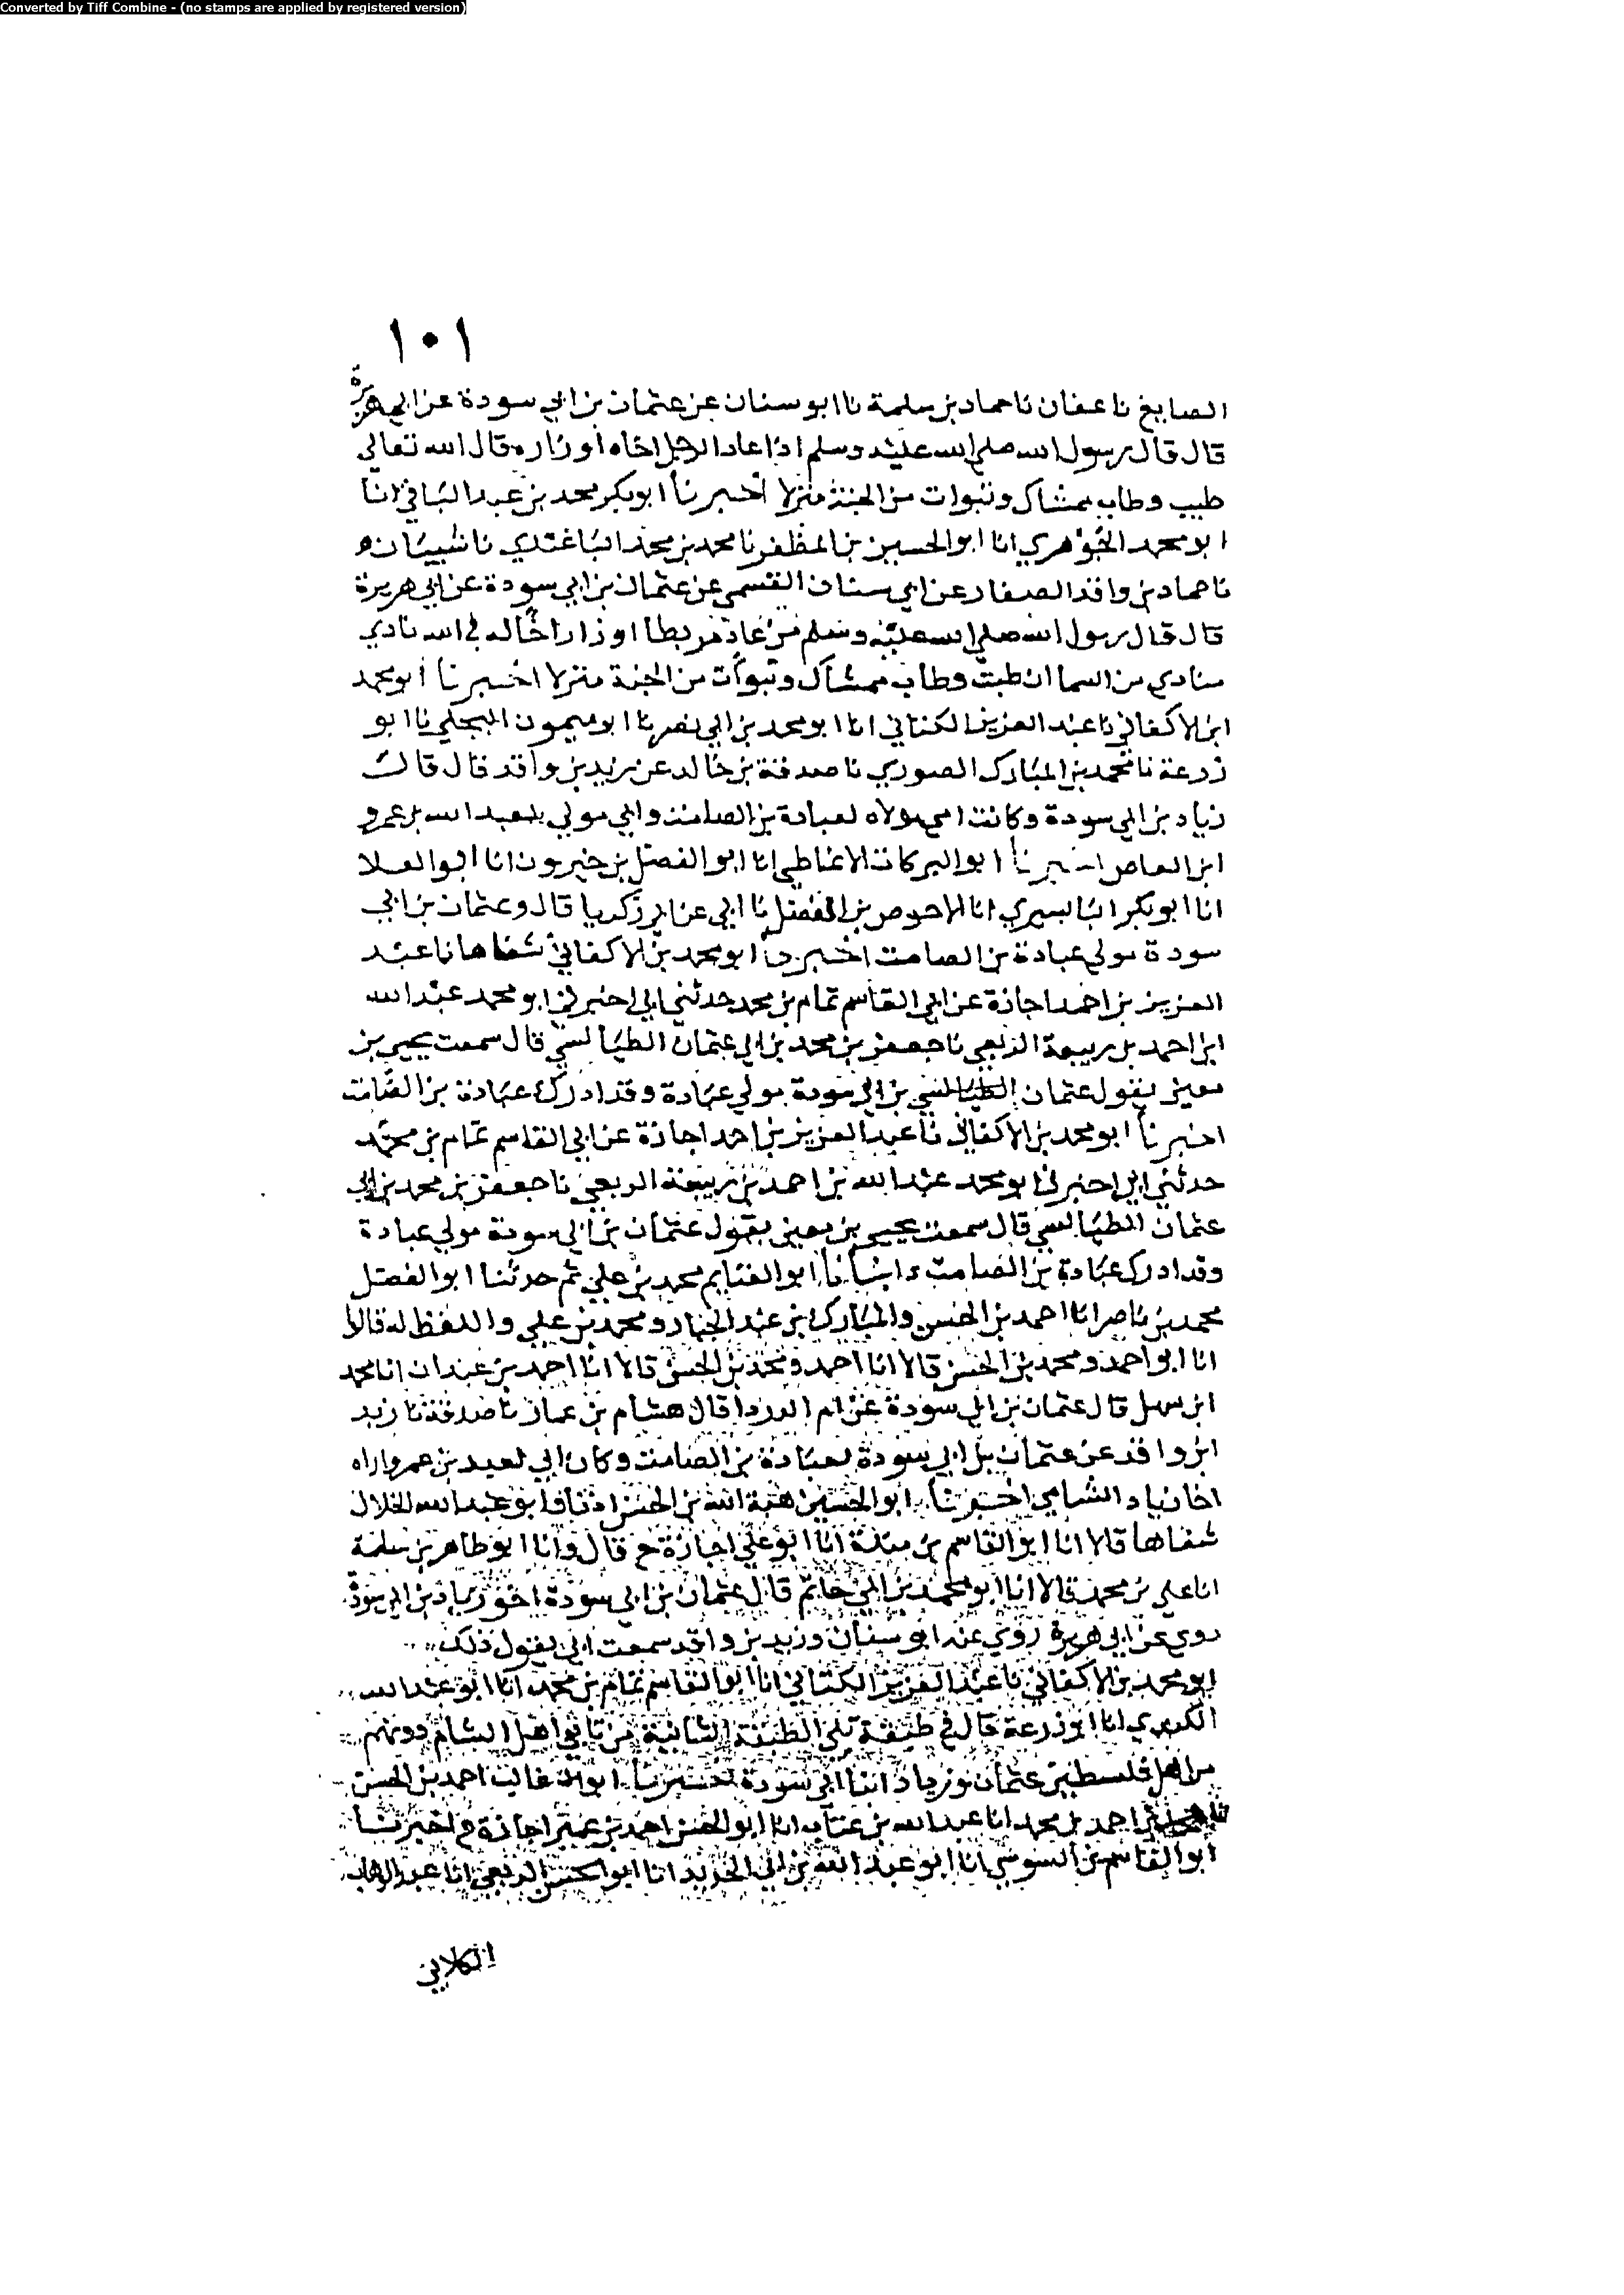 Converted by Tiff Combine - (no stamps are applied by registered version)
١٠١
الصايغ نا عفان نا حماد بن سلمة نا ابو سنان عن عثمان بن ابي سودة عن ابي هريرة
قال قال رسول الله صلى الله عليه وسلم اذا عاد الرجل اخاه او زاره قال الله تعالى
طبت وطاب ممشاك وتبوات من الجنة منزلا اخبرنا ابو بكر محمد بن عبد الباقي انا
ابو محمد الجوهري انا ابو الحسين بن المظفر نا محمد بن محمد الباغندي نا شيبان
نا حماد بن واقد الصفار عن ابي سنان القسمي عن عثمان بن ابي سودة عن ابي هريرة
قال قال رسول الله صلى الله عليه وسلم من عاد مريضا او زار اخا له في الله نادي
منادي من السما ان طبت وطاب ممشاك وتبوأت من الجنة منزلا اخبرنا ابو محمد
ابن الاكفاني نا عبد العزيز الكتاني انا ابو محمد بن ابي نصر نا ابو ميمون البجلي نا ابو
زرعة نا محمد بن المبارك الصوري نا صدقة بن خالد عن زيد بن واقد قال قال
زياد بن ابي سودة وكانت امي مولاه لعبادة بن الصامت وابي مولي لعبد الله بن عمرو
ابن العاص اخبرنا ابو البركات الانماطي انا ابو الفضل بن خيرون انا ابو العلا
انا ابو بكر البابسيري انا الاحوص بن المفضل نا ابي عن ابي زكريا قال وعثمان بن ابي
سودة مولي عبادة بن الصامت اخبرنا ابو محمد بن الاكفاني شفاها نا عبد
العزيز بن احمد اجازة عن ابي القاسم تمام بن محمد حدثني ابي اخبرني ابو محمد عبد الله
ابن احمد بن ربيعة الربعي نا جعفر بن محمد بن ابي عثمان الطيالسي قال سمعت يحيى بن
معين يقول عثمان بن ابي سودة مولي عبادة وقد ادرك عبادة بن الصامت
اخبرنا ابو محمد بن الاكفاني نا عبد العزيز بن احمد اجازة عن ابي القاسم تمام بن محمد
حدثني ابي اخبرني ابو محمد عبد الله بن احمد بن ربيعة الربعي نا جعفر بن محمد بن ابي
عثمان الطيالسي قال سمعت يحيى بن معين يقول عثمان بن ابي سودة مولي عبادة
وقد ادرك عبادة بن الصامت انبانا ابو الغنايم محمد بن علي ثم حدثنا ابو الفضل
محمد بن ناصر انا احمد بن الحسن والمبارك بن عبد الجبار ومحمد بن علي واللفظ له قالوا
انا ابو احمد ومحمد بن الحسن قالا انا احمد بن عبدان انا محمد
ابن سهل قال عثمان بن ابي سودة عن ام الدردا قال هشام بن عمار نا صدقة نا زيد
ابن واقد عن عثمان بن ابي سودة لعبادة بن الصامت وكان ابي لعبد بن عمرو اراه
اخا زياد الشامي اخبرنا ابو الحسين هبة الله بن الحسن اذنا وابو عبد الله الخلال
شفاها قالا انا ابو القاسم بن مندة انا ابو علي اجازة ح قال وانا ابو طاهر بن سلمة
انا علي بن محمد قالا انا ابو محمد بن ابي حاتم قال عثمان بن ابي سودة اخو زياد بن ابي سودة
روي عن ابي هريرة روي عنه ابو سنان وزيد بن واقد سمعت ابي يقول ذلك
ابو محمد بن الاكفاني نا عبد العزيز الكتاني انا ابو القاسم تمام بن محمد انا ابو عبد الله
الكندي انا ابو زرعة قال في طبقة تلي الطبقة الثانية من تابعي اهل الشام دونهم
من اهل فلسطين عثمان وزياد ابنا ابي سودة اخبرنا ابو غالب احمد بن الحسن
احمد بن محمد انا عبد الله بن عتاب انا ابو الحسن احمد بن عمير اجازة ح اخبرنا
ابو القاسم بن السوسي انا ابو عبد الله بن ابي الحديد انا ابو الحسن الربعي انا عبد الوهاب
الكلابي